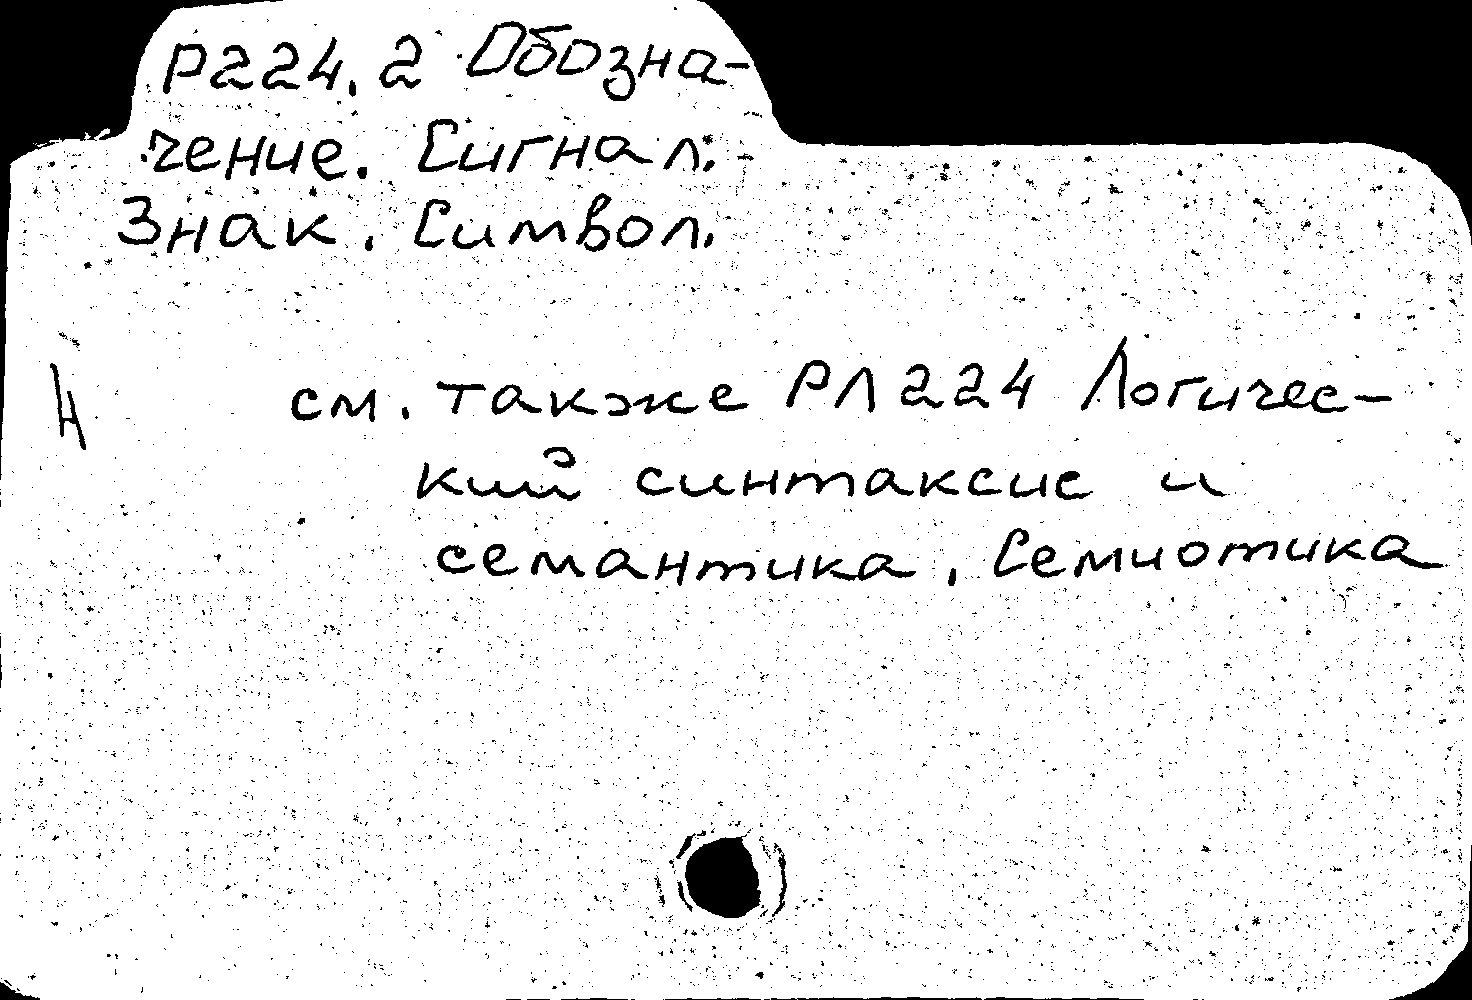 Р224.2 Обозна-
чение. Сигнал.
Знак. Символ.
см. также РЛ224 Логичес-
кий синтаксис и
семантика, Семиотика